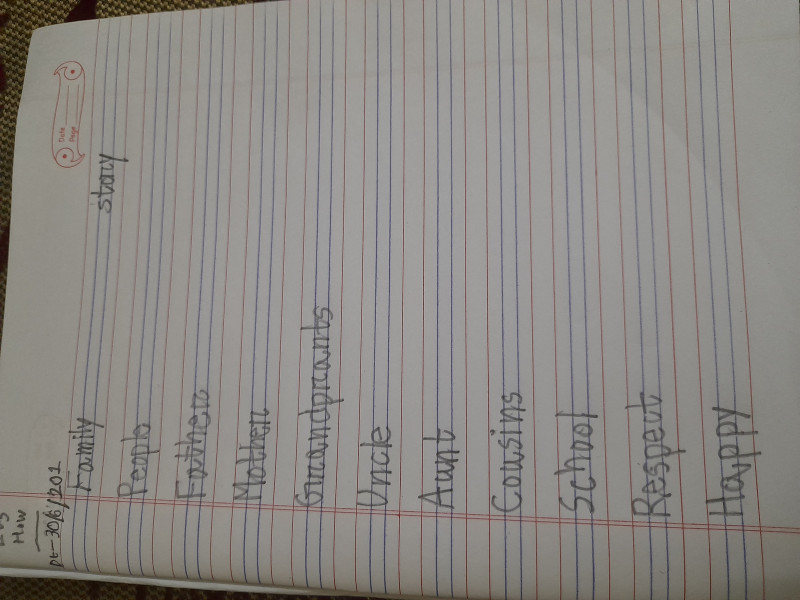 Date
Page
H.W
Dt-30/6/202
Family stay
People
Father
Mother
Grandprants
Uncle
Aunt
Cousins
School
Respect
Happy